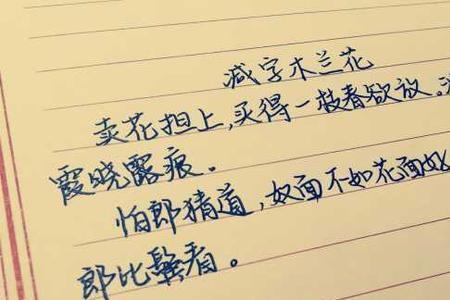 减字木兰花
卖花担上,买得一枝春欲放。
霞晓露痕。
怕郎猜道,奴面不如花面好
郎比鬓看。